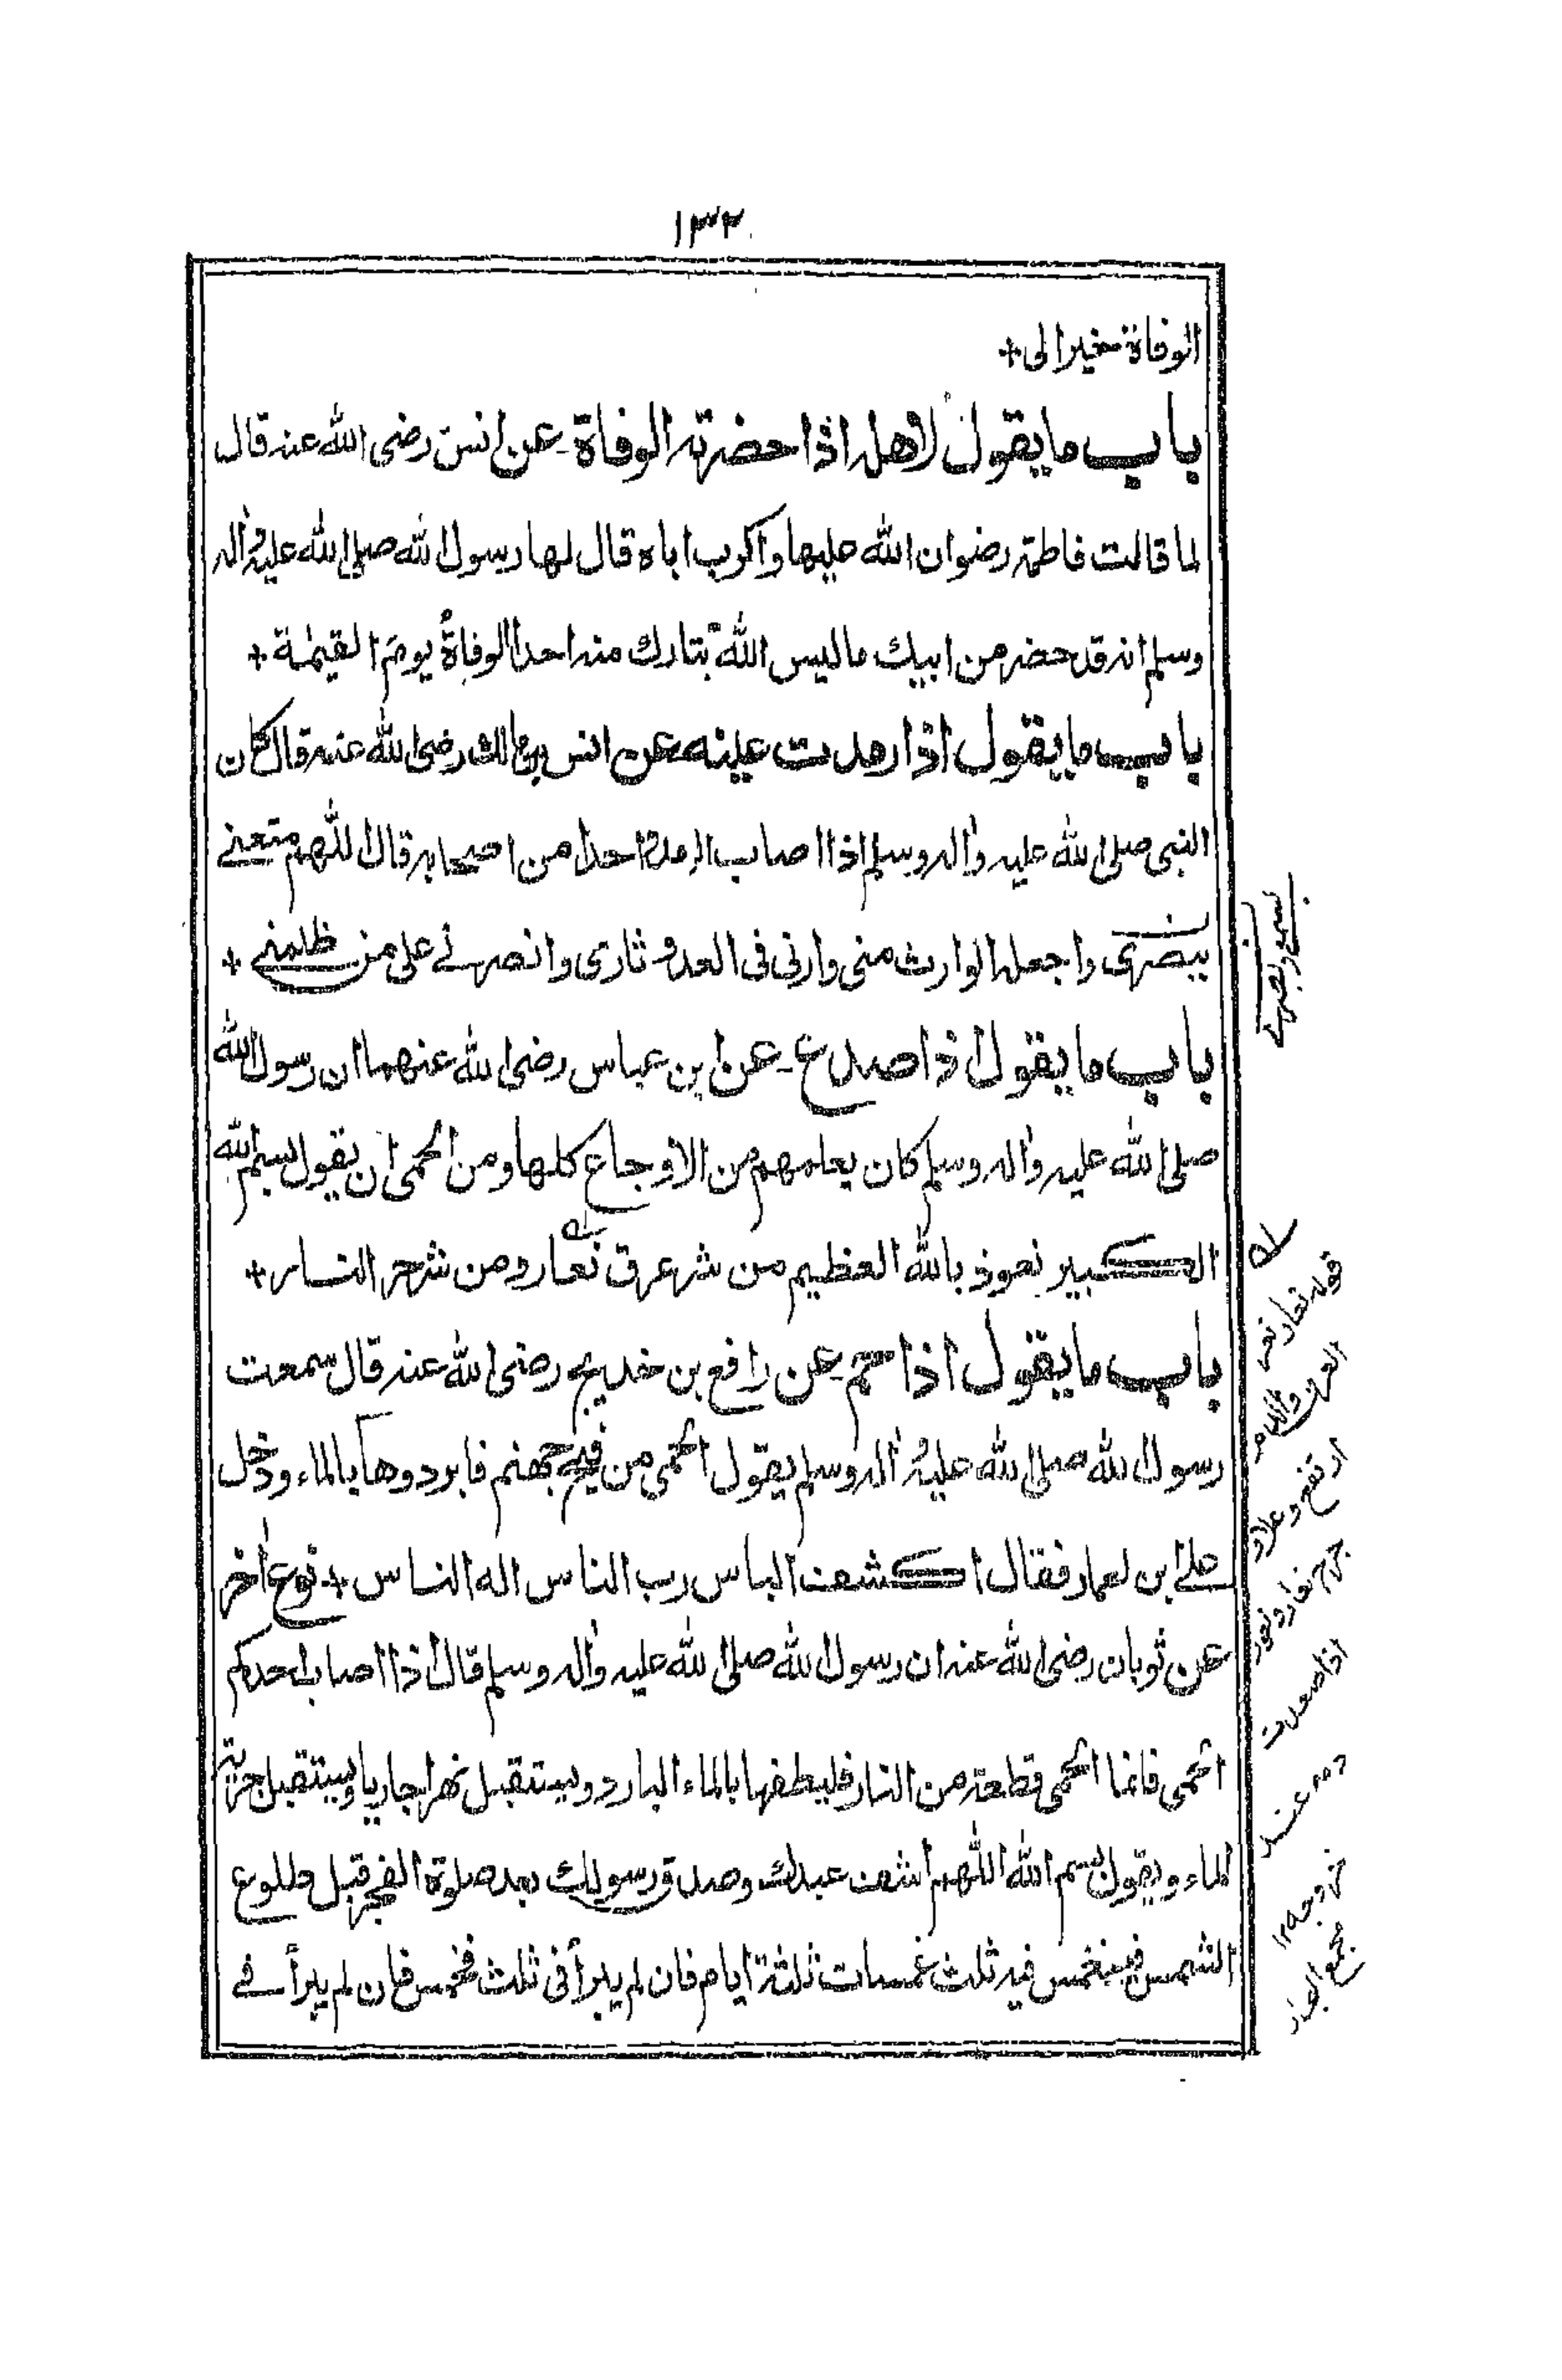 ١٣٢
الوفاة خيرا لى +
باب ما يقول لاهله اذا حضرته الوفاة ـ عن انس رضى الله عنه قال
لما قالت فاطمة رضوان الله عليها واكرب اباه قال لها رسول الله صلى الله عليه وٰاله
وسلم انه قد حضر من ابيك ما ليس الله بتارك منه احدا الوفاةُ يومَ القيٰمة +
باب ما يقول اذا رمدت عينه عن انس بن مالك رضى الله عنه قال كان
النبى صلى الله عليه وٰاله وسلم اذا اصاب الرمد احدا من اصحابه قال اللهم متعنے
ببصرى واجعله الوارث منى وارنى فى العدو ثارى وانصرنے على من ظلمنے +
باب ما يقول اذا صدع ـ عن ابن عباس رضى الله عنهما ان رسول الله
صلى الله عليه وٰاله وسلم كان يعلمهم من الاوجاع كلها ومن الحمى ان يقول بسم الله
الكبير نعوذ بالله العظيم من شر عرق نعار ومن شر حر النار +
باب ما يقول اذا حم ـ عن رافع بن خديج رضى الله عنه قال سمعت
رسول الله صلى الله عليه وٰاله وسلم يقول الحمى من فيح جهنم فابردوها بالماء ودخل
علےٰ ابن لعمار فقال اكشف الباس رب الناس اله الناس + نوع اٰخر
عن ثوبان رضى الله عنه ان رسول الله صلى الله عليه وٰاله وسلم قال اذا اصاب احدكم
الحمى فانما الحمى قطعة من النار فليطفها بالماء البارد ويستقبل نهرا جاريا ويستقبل جرية
الماء ويقول بسم الله اللهم اشف عبدك وصدق رسولك بعد صلوة الفجر قبل طلوع
الشمس فينغمس فيه ثلث غمسات ثلثة ايام فان لم يبرأ فى ثلث فخمس فان لم يبرأ فے
بسمعے وبصرے
قوله نعار نعر
العرق والدم
ارتفع وعلا و
جرح نعار ونعور
اذا صوت
دمه عند
خروجه ١٢
مجمع البحار